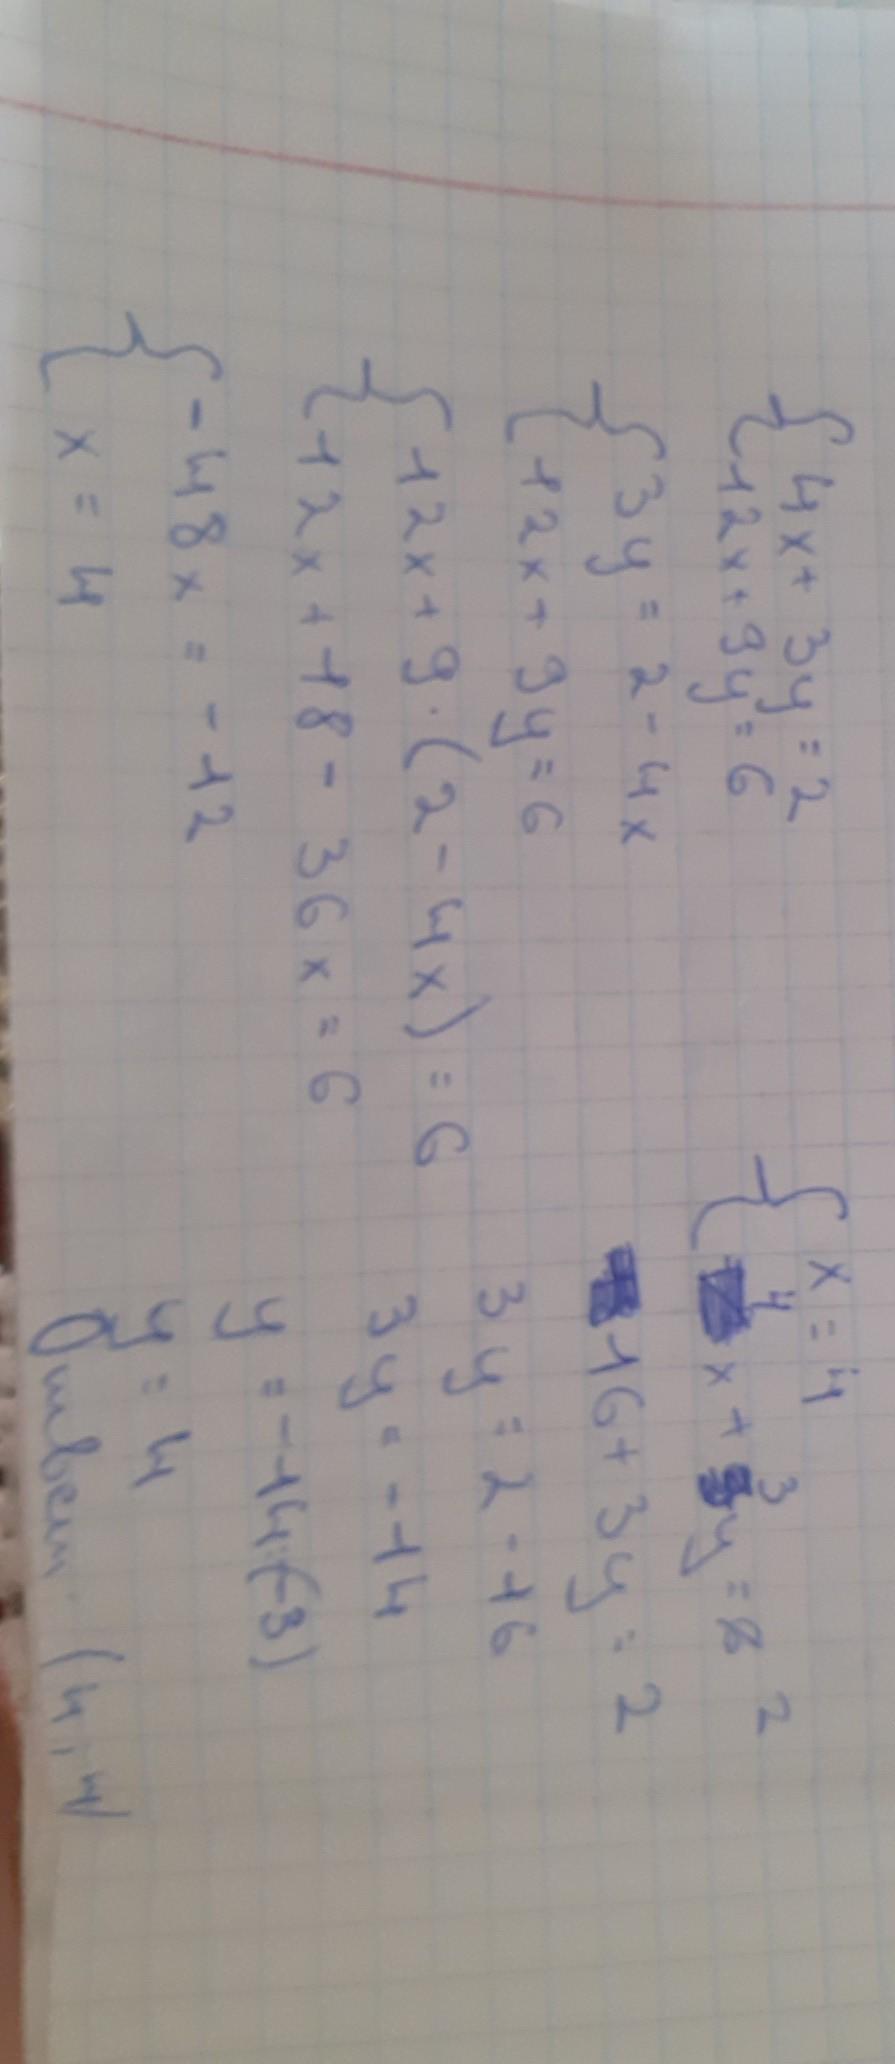 4x + 3y = 2
12x + 9y = 6
3y = 2 - 4x
12x + 9y = 6
12x + 9 · (2 - 4x) = 6
12x + 18 - 36x = 6
-48x = -12
x = 4
x = 4
4x + 3y = 2
16 + 3y = 2
3y = 2 - 16
3y = -14
y = -14:(-3)
y = 4
Ответ: (4; 4)